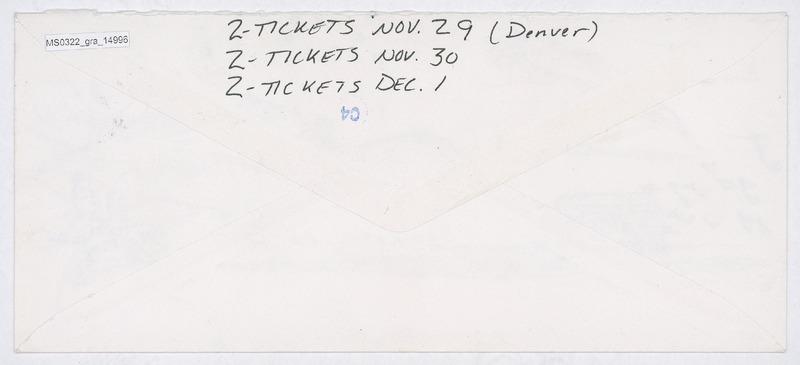 2-TICKETS NOV. 29 (Denver)
MS0322_gra_14996
2-TICKETS NOV. 30
2-TICKETS DEC. 1
C4